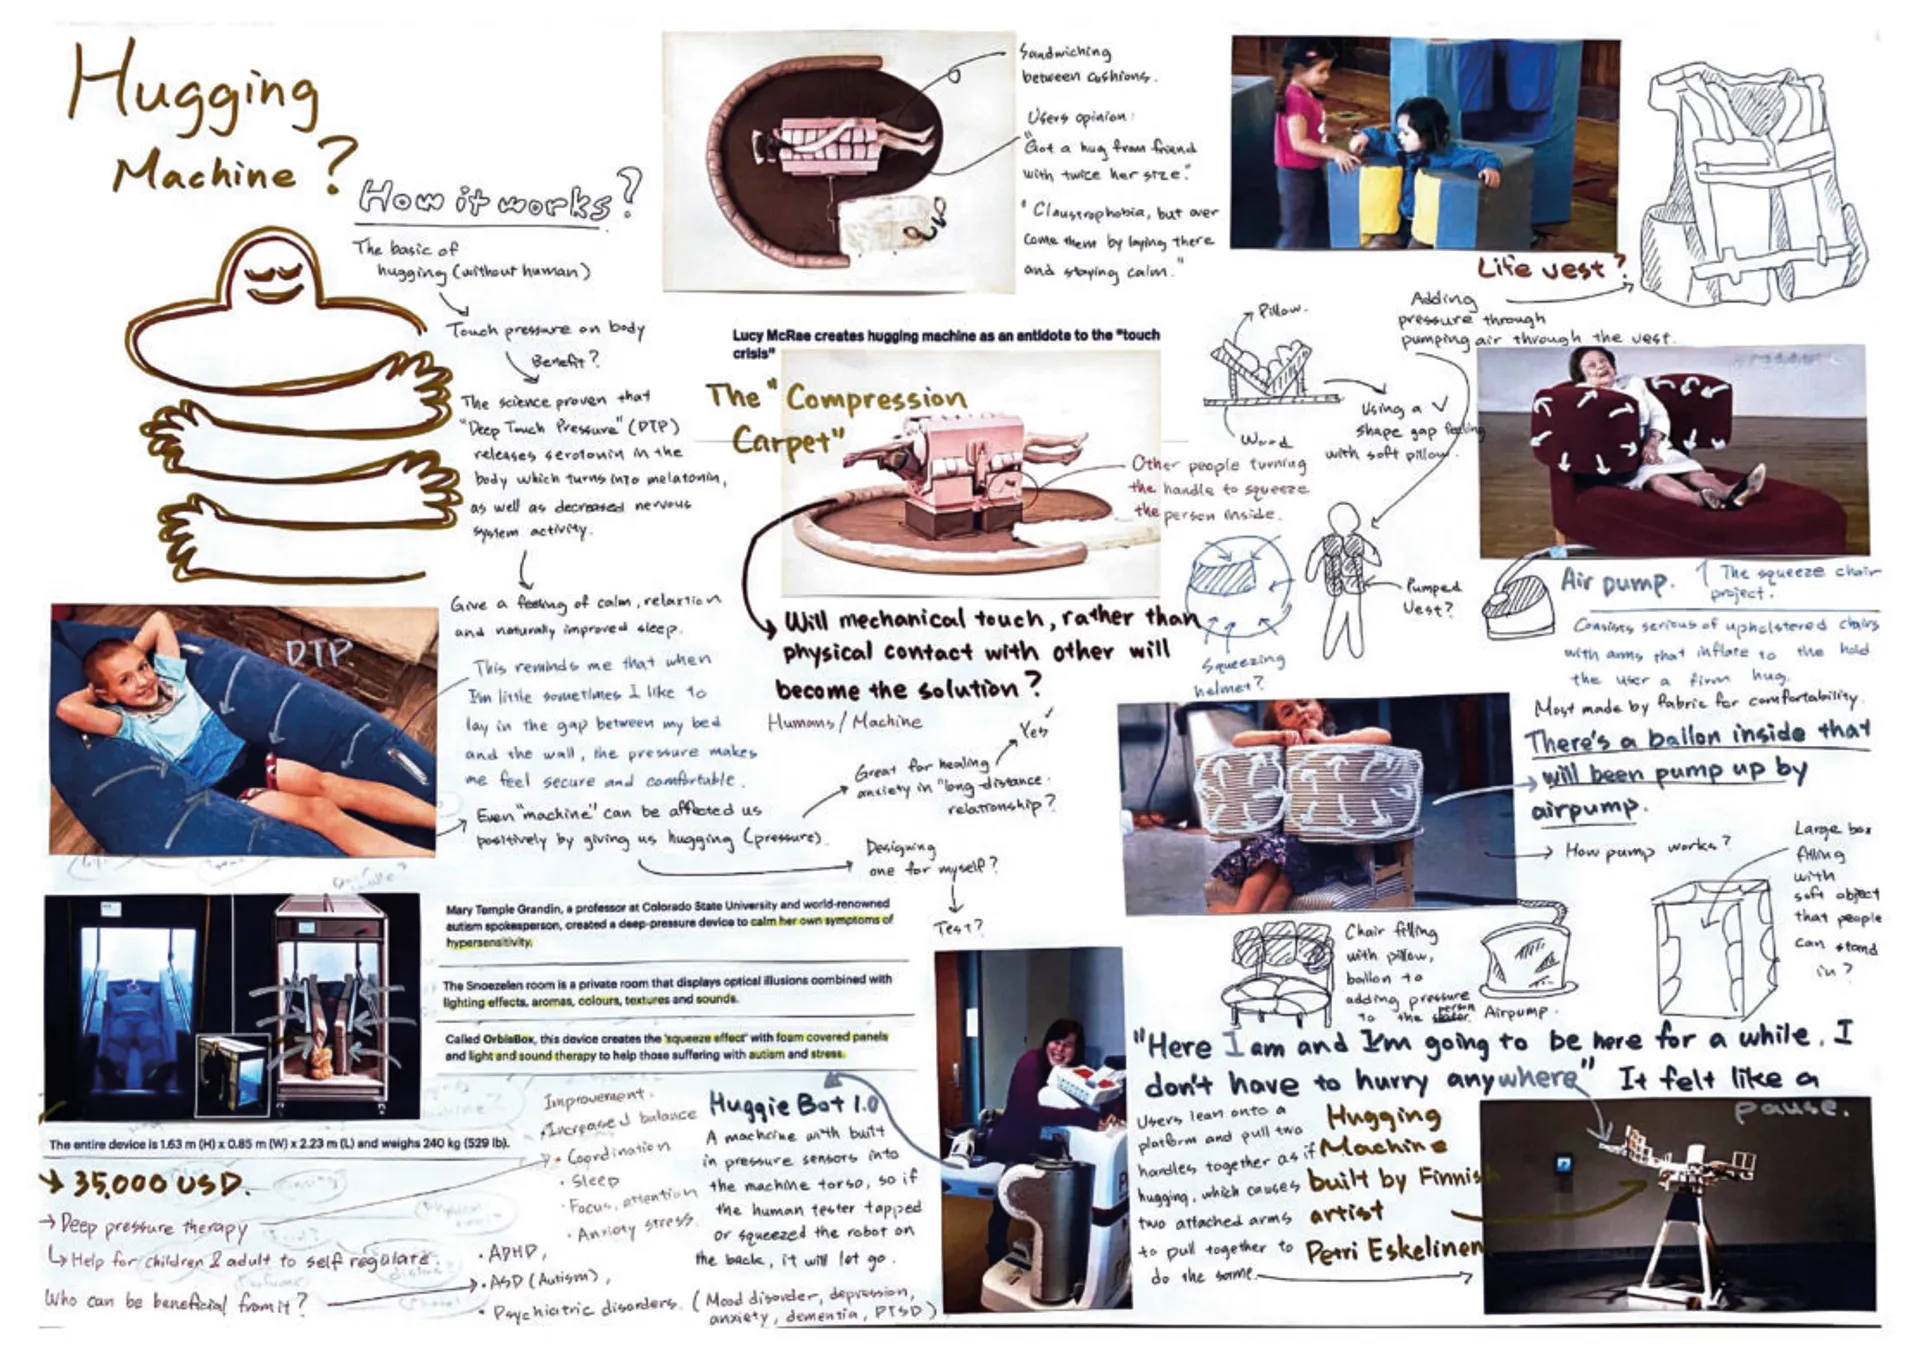 Hugging
Machine?
How it works?
The basic of
hugging (without human)
Touch pressure on body
Benefit?
The science proven that
"Deep Touch Pressure" (DTP)
releases serotonin in the
body which turns into melatonin,
as well as decreased nervous
system activity.
Give a feeling of calm, relaxtion
and naturally improved sleep.
DTP.
This reminds me that when
I'm little sometimes I like to
lay in the gap between my bed
and the wall, the pressure makes
me feel secure and comfortable.
Even "machine" can be affected us
positively by giving us hugging (pressure).
Great for healing
anxiety in "long-distance
relationship?
Yes
Designing
one for myself?
Test?
Sandwiching
between cushions.
Users opinion:
"Got a hug from friend
with twice her size."
"Claustrophobia, but over
come them by laying there
and staying calm."
Lucy McRae creates hugging machine as an antidote to the "touch
crisis"
The "Compression
Carpet"
Other people turning
the handle to squeeze
the person inside.
Will mechanical touch, rather than
physical contact with other will
become the solution?
Humans/Machine
Pillow.
Wood
Using a V
shape gap feeling
with soft pillow.
Life vest?
Adding
pressure through
pumping air through the vest.
Pumped
Vest?
Squeezing
helmet?
Air pump.
The squeeze chair
project.
Consists serious of upholstered chairs
with arms that inflate to the hold
the user a firm hug.
Most made by fabric for comfortability.
There's a ballon inside that
will been pump up by
airpump.
How pump works?
Large box
filling
with
soft object
that people
can stand
in?
Chair filling
with pillow,
ballon to
adding pressure
to the person
Airpump.
Mary Temple Grandin, a professor at Colorado State University and world-renowned
autism spokesperson, created a deep-pressure device to calm her own symptoms of
hypersensitivity.
The Snoezelen room is a private room that displays optical illusions combined with
lighting effects, aromas, colours, textures and sounds.
Called OrbisBox, this device creates the 'squeeze effect' with foam covered panels
and light and sound therapy to help those suffering with autism and stress.
The entire device is 1.63 m (H) x 0.85 m (W) x 2.23 m (L) and weighs 240 kg (529 lb).
35,000 USD.
Deep pressure therapy
Help for children & adult to self regulate.
Who can be beneficial from it?
Improvement.
Increased balance
• Coordination
• Sleep
• Focus, attention
• Anxiety stress.
• ADHD,
• ASD (Autism),
• Psychiatric disorders. (Mood disorder, depression,
anxiety, dementia, PTSD)
Huggie Bot 1.0
A machine with built
in pressure sensors into
the machine torso, so if
the human tester tapped
or squeezed the robot on
the back, it will let go.
"Here I am and I'm going to be here for a while. I
don't have to hurry anywhere" It felt like a
pause.
Users lean onto a
platform and pull two
handles together as if
hugging, which causes
two attached arms
to pull together to
do the same.
Hugging
Machine
built by Finnish
artist
Petri Eskelinen